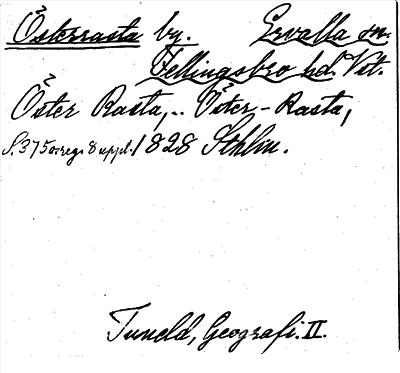 Österrasta by. Ervalla sn.
Fellingsbro hd. Vstl.
Öster Rasta, .. Öster-Rasta,
S. 375 o. reg. 8 uppl. 1828 Sthlm.
Tuneld, Geografi. II.